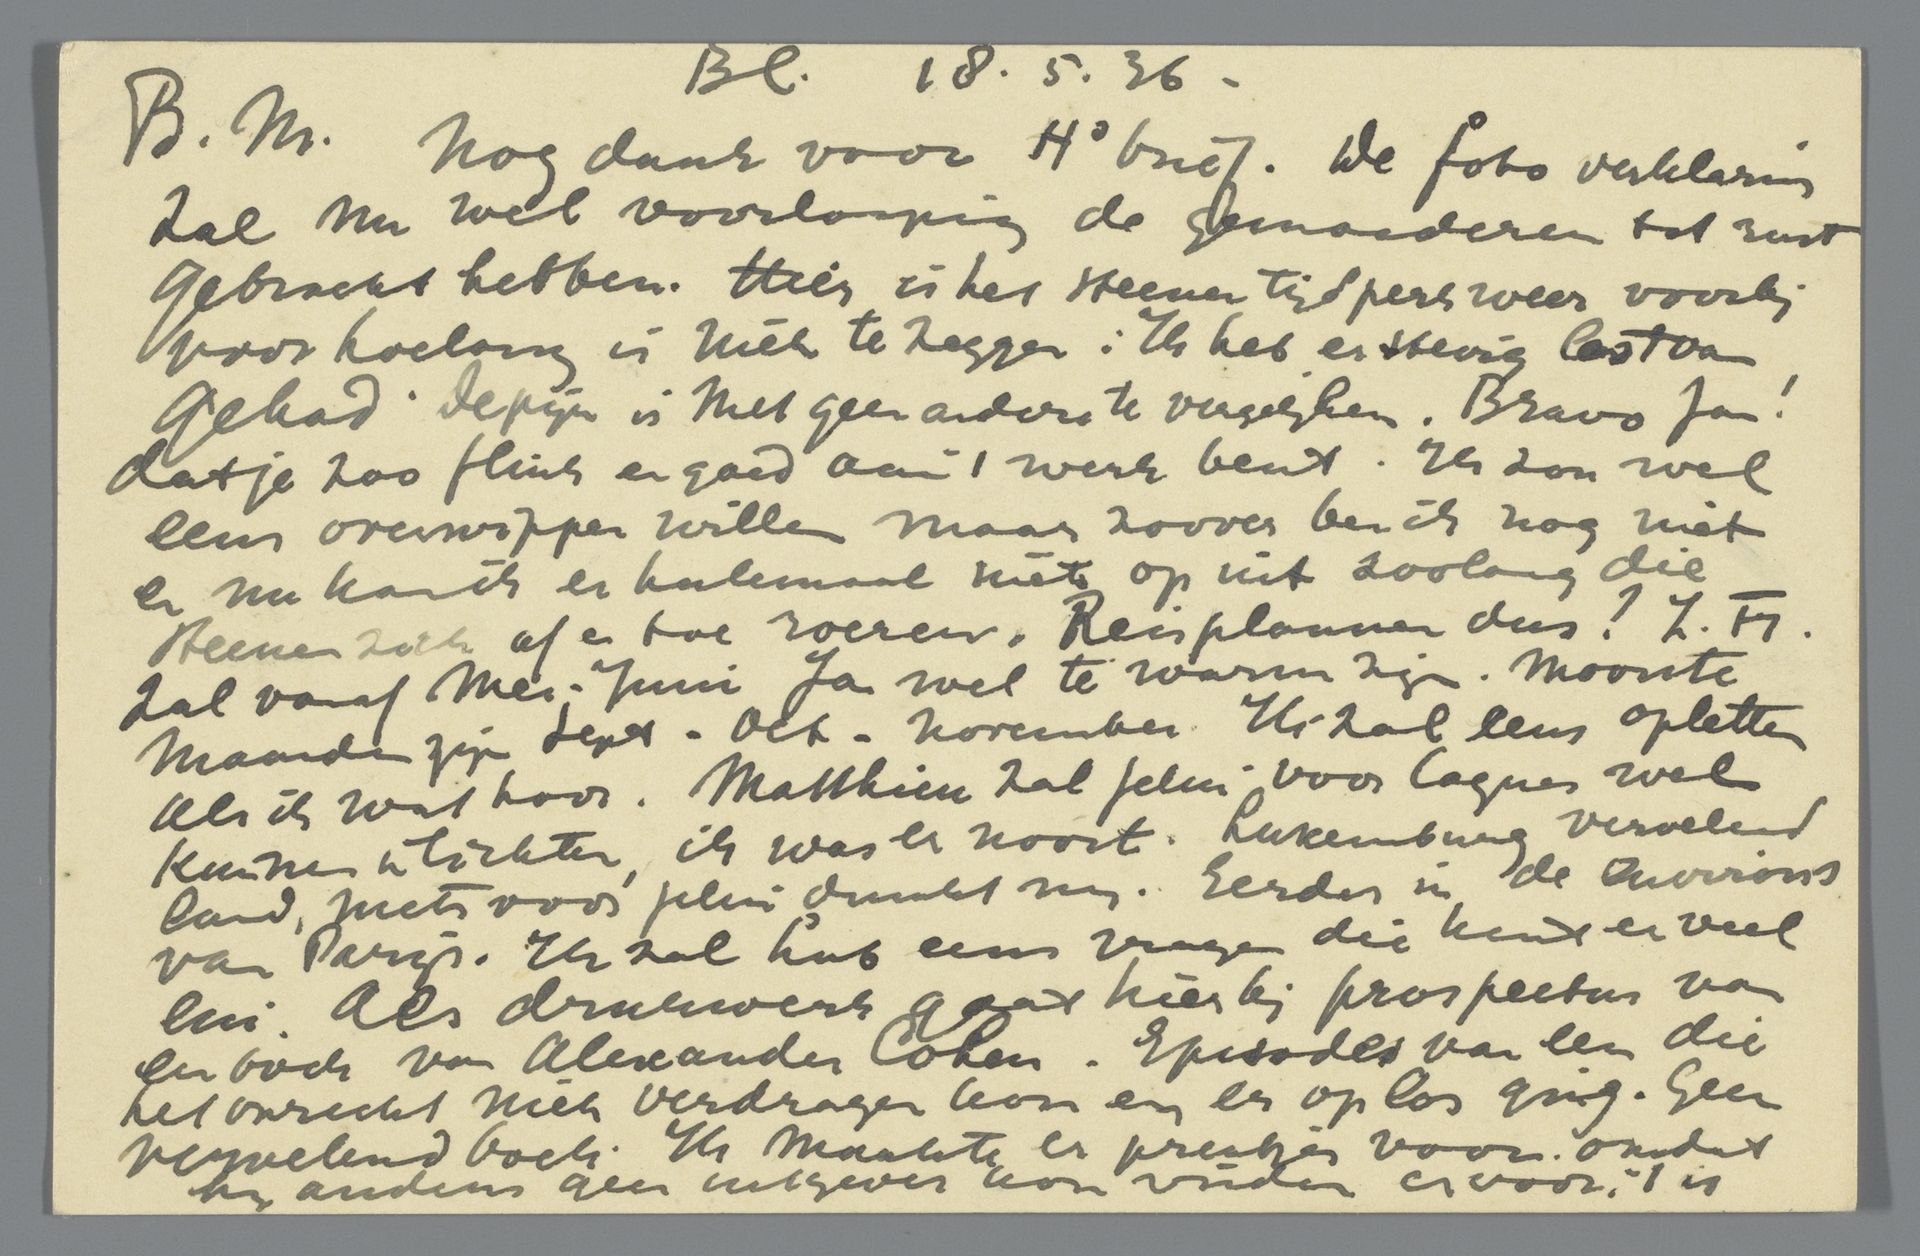 Bl. 18.5.36-
B. M. Nog dank voor Hº brief. De foto verklaring
zal nu wel voorloopig de gemoederen tot rust
gebracht hebben. Hier is het steenen tijdperk weer voorbij
voor hoelang is niet te zeggen: Ik heb er stevig last van
gehad. De pijn is met geen andere te vergelijken. Bravo Jan!
dat je zoo flink en goed aan 't werk bent. Ik zou wel
eens overwippen willen maar zoover ben ik nog niet
en nu kan ik er heelemaal niets op uit zoolang die
steenen zich af en toe roeren. Reisplannen dus! Z. Fr.
zal vanaf Mei-Juni Ja wel te warm zijn. Mooiste
Maanden zijn Sept - Oct - November. Ik zal eens opletten
als ik wat hoor. Matthieu zal jelui voor Cagnes wel
kunnen inlichten, ik was er nooit. Luxemburg vervelend
land, niets voor jelui dunkt mij. Eerder in de environs
van Parijs. Ik zal Hub eens vragen die kent er veel
lui. Als drukwerk gaat hierbij prospectus van
een boek van Alexander Cohen. Episodes van een die
het onrecht niet verdragen kon en er op los ging. Geen
vervelend boek. Ik maakte er prentjes voor omdat
hij anders geen uitgever kon vinden ervoor, 't is